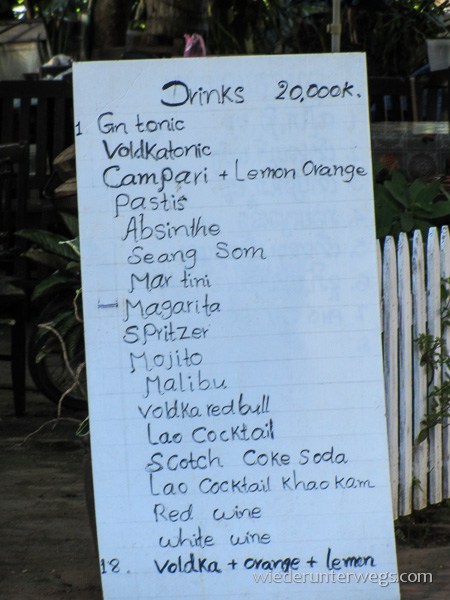 Drinks 20,000K.
1 Gn tonic
Voldkatonic
Campari + Lemon Orange
Pastis
Absinthe
Seang Som
Martini
- Magarita
SPritzer
Mojito
Malibu
voldka redbull
Lao Cocktail
Scotch Coke Soda
Lao Cocktail khao kam
Red wine
white wine
18. voldka + orange + lemon
wiederunterwegs.com